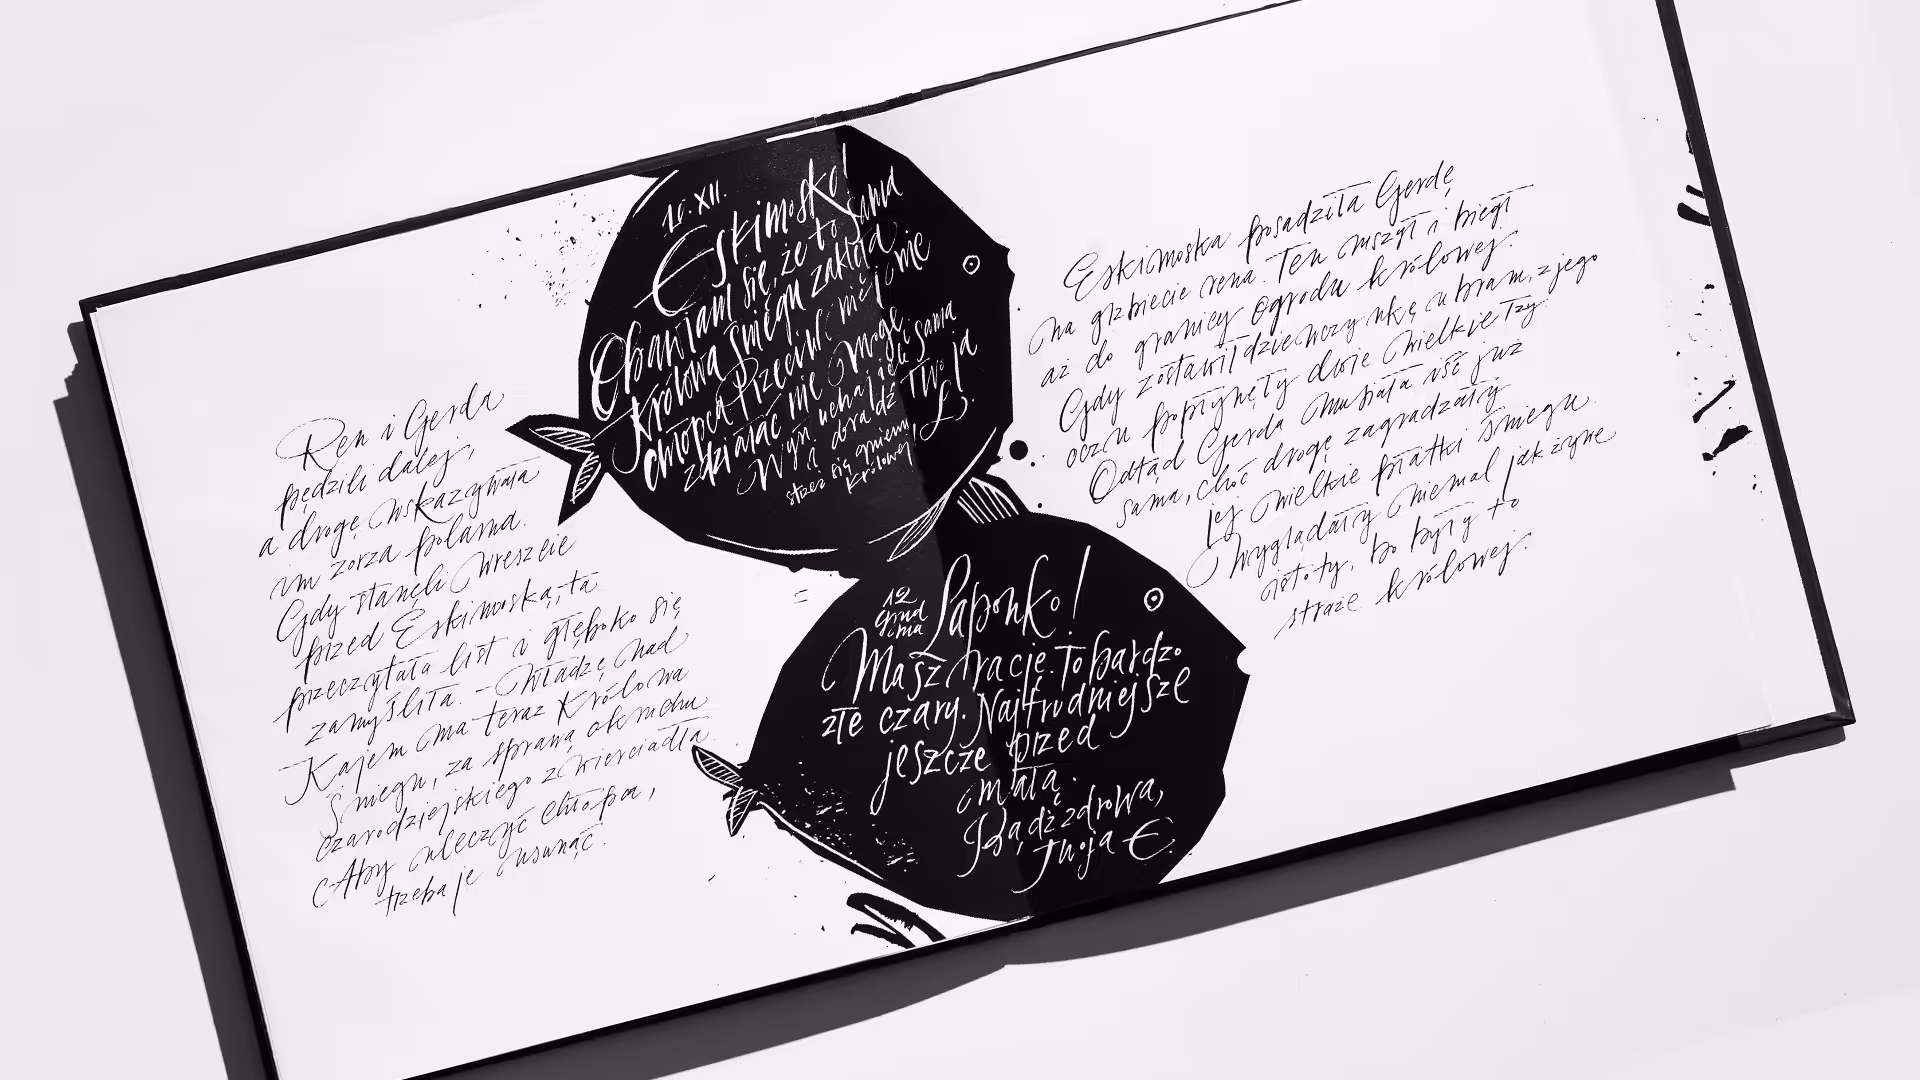 Ren i Gerda
pędzili dalej,
a drogę wskazywała
im zorza polarna.
Gdy stanęli wreszcie
przed Eskimoską, ta
przeczytała list i głęboko się
zamyśliła. – Władzę nad
Kajem ma teraz Królowa
Śniegu, za sprawą okruchu
czarodziejskiego zwierciadła.
Aby uleczyć chłopca,
trzeba je usunąć.
XII.
Eskimosko!
Obawiam się, że to sama
Królowa Śniegu zaklęła
chłopca. Przeciw niej nie
zdziałać nie mogę
Wyń ucha jeśli sama
doradź Twoja
strzeż się gniewu Ł.
Królowej
12
grud
nia
Laponko!
Masz rację. To bardzo
złe czary. Najtrudniejsze
jeszcze przed
małą.
Bądź zdrowa,
Twoja E.
Eskimoska posadziła Gerdę
na grzbiecie rena. Ten ruszył i biegł
aż do granicy ogrodu królowej.
Gdy zostawił dziewczynkę u bram, z jego
oczu popłynęły dwie wielkie łzy.
Odtąd Gerda musiała iść już
sama, choć drogę zagradzały
jej wielkie płatki śniegu.
Wyglądały niemal jak żywe
istoty, bo były to
straże królowej.